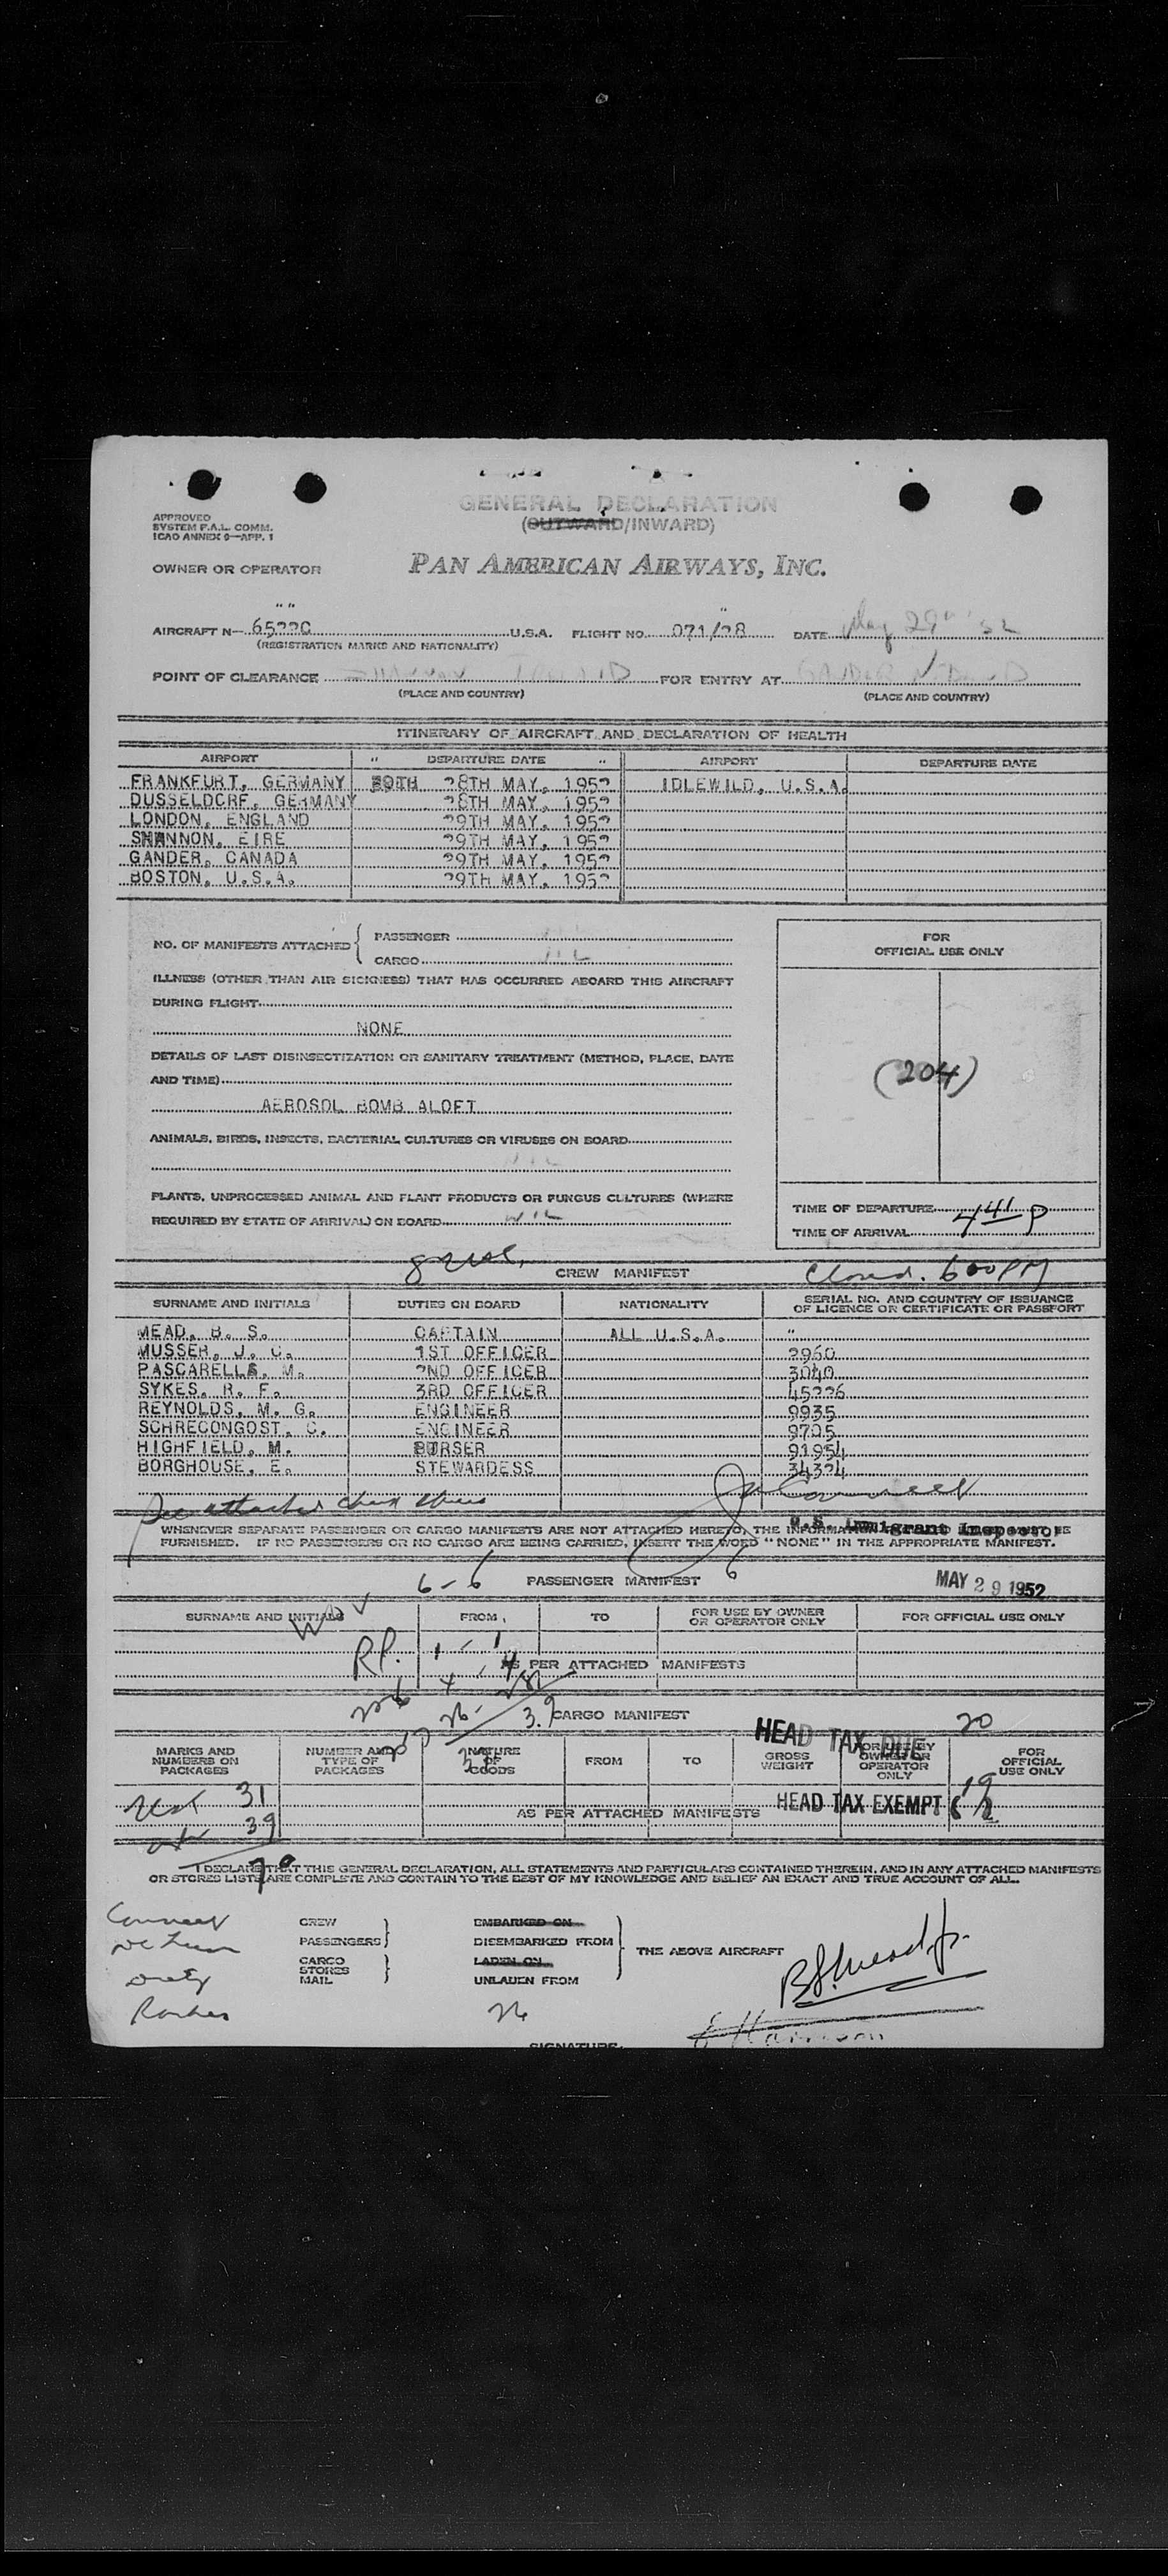 GENERAL DECLARATION
(OUTWARD/INWARD)
APPROVED
SYSTEM F.A.L. COMM.
ICAO ANNEX 9—APP. 1
OWNER OR OPERATOR PAN AMERICAN AIRWAYS, INC.
AIRCRAFT N— U.S.A. FLIGHT NO. 071/28 DATE May 29
(REGISTRATION MARKS AND NATIONALITY)
POINT OF CLEARANCE SHANNON FOR ENTRY AT GANDER
(PLACE AND COUNTRY) (PLACE AND COUNTRY)
ITINERARY OF AIRCRAFT AND DECLARATION OF HEALTH
AIRPORT DEPARTURE DATE AIRPORT DEPARTURE DATE
FRANKFURT, GERMANY 28TH MAY, 1952 IDLEWILD, U.S.A.
DUSSELDORF, GERMANY 28TH MAY, 1952
LONDON, ENGLAND 29TH MAY, 1952
SHANNON, EIRE 29TH MAY, 1952
GANDER, CANADA 29TH MAY, 1952
BOSTON, U.S.A. 29TH MAY, 1952
NO. OF MANIFESTS ATTACHED { PASSENGER
CARGO NIL
FOR
OFFICIAL USE ONLY
ILLNESS (OTHER THAN AIR SICKNESS) THAT HAS OCCURRED ABOARD THIS AIRCRAFT
DURING FLIGHT
NONE
DETAILS OF LAST DISINSECTIZATION OR SANITARY TREATMENT (METHOD, PLACE, DATE
AND TIME)
(204)
AEROSOL BOMB ALOFT
ANIMALS, BIRDS, INSECTS, BACTERIAL CULTURES OR VIRUSES ON BOARD
NIL
PLANTS, UNPROCESSED ANIMAL AND PLANT PRODUCTS OR FUNGUS CULTURES (WHERE
REQUIRED BY STATE OF ARRIVAL) ON BOARD NIL
TIME OF DEPARTURE
TIME OF ARRIVAL 4 41 P
CREW MANIFEST
Closed. 6 00 PM
SURNAME AND INITIALS DUTIES ON BOARD NATIONALITY SERIAL NO. AND COUNTRY OF ISSUANCE
OF LICENCE OR CERTIFICATE OR PASSPORT
MEAD, B. S. CAPTAIN ALL U.S.A. "
MUSSER, J. C. 1ST OFFICER 2960
PASCARELLA, M. 2ND OFFICER 3040
SYKES, R. F. 3RD OFFICER 45226
REYNOLDS, M. G. ENGINEER 9935
SCHRECONGOST, C. ENGINEER 9705
HIGHFIELD, M. PURSER 91954
BORGHOUSE, E. STEWARDESS 34324
See attached
U.S. Immigrant Inspector
WHENEVER SEPARATE PASSENGER OR CARGO MANIFESTS ARE NOT ATTACHED HERETO, THE INFORMATION BE
FURNISHED. IF NO PASSENGERS OR NO CARGO ARE BEING CARRIED, INSERT THE WORD "NONE" IN THE APPROPRIATE MANIFEST.
6 - 6 PASSENGER MANIFEST MAY 29 1952
SURNAME AND INITIALS FROM TO FOR USE BY OWNER
OR OPERATOR ONLY FOR OFFICIAL USE ONLY
RP. 1 - 1
AS PER ATTACHED MANIFESTS
CARGO MANIFEST 20
HEAD TAX DUE
MARKS AND
NUMBERS ON
PACKAGES NUMBER AND
TYPE OF
PACKAGES NATURE
OF
GOODS FROM TO GROSS
WEIGHT FOR USE BY
OWNER OR
OPERATOR
ONLY FOR
OFFICIAL
USE ONLY
31
39
AS PER ATTACHED MANIFESTS HEAD TAX EXEMPT
70
I DECLARE THAT THIS GENERAL DECLARATION, ALL STATEMENTS AND PARTICULARS CONTAINED THEREIN, AND IN ANY ATTACHED MANIFESTS
OR STORES LISTS ARE COMPLETE AND CONTAIN TO THE BEST OF MY KNOWLEDGE AND BELIEF AN EXACT AND TRUE ACCOUNT OF ALL.
CREW
PASSENGERS
CARGO
STORES
MAIL
EMBARKED ON
DISEMBARKED FROM
LADEN ON
UNLADEN FROM
THE ABOVE AIRCRAFT
B S Mead Jr.
SIGNATURE